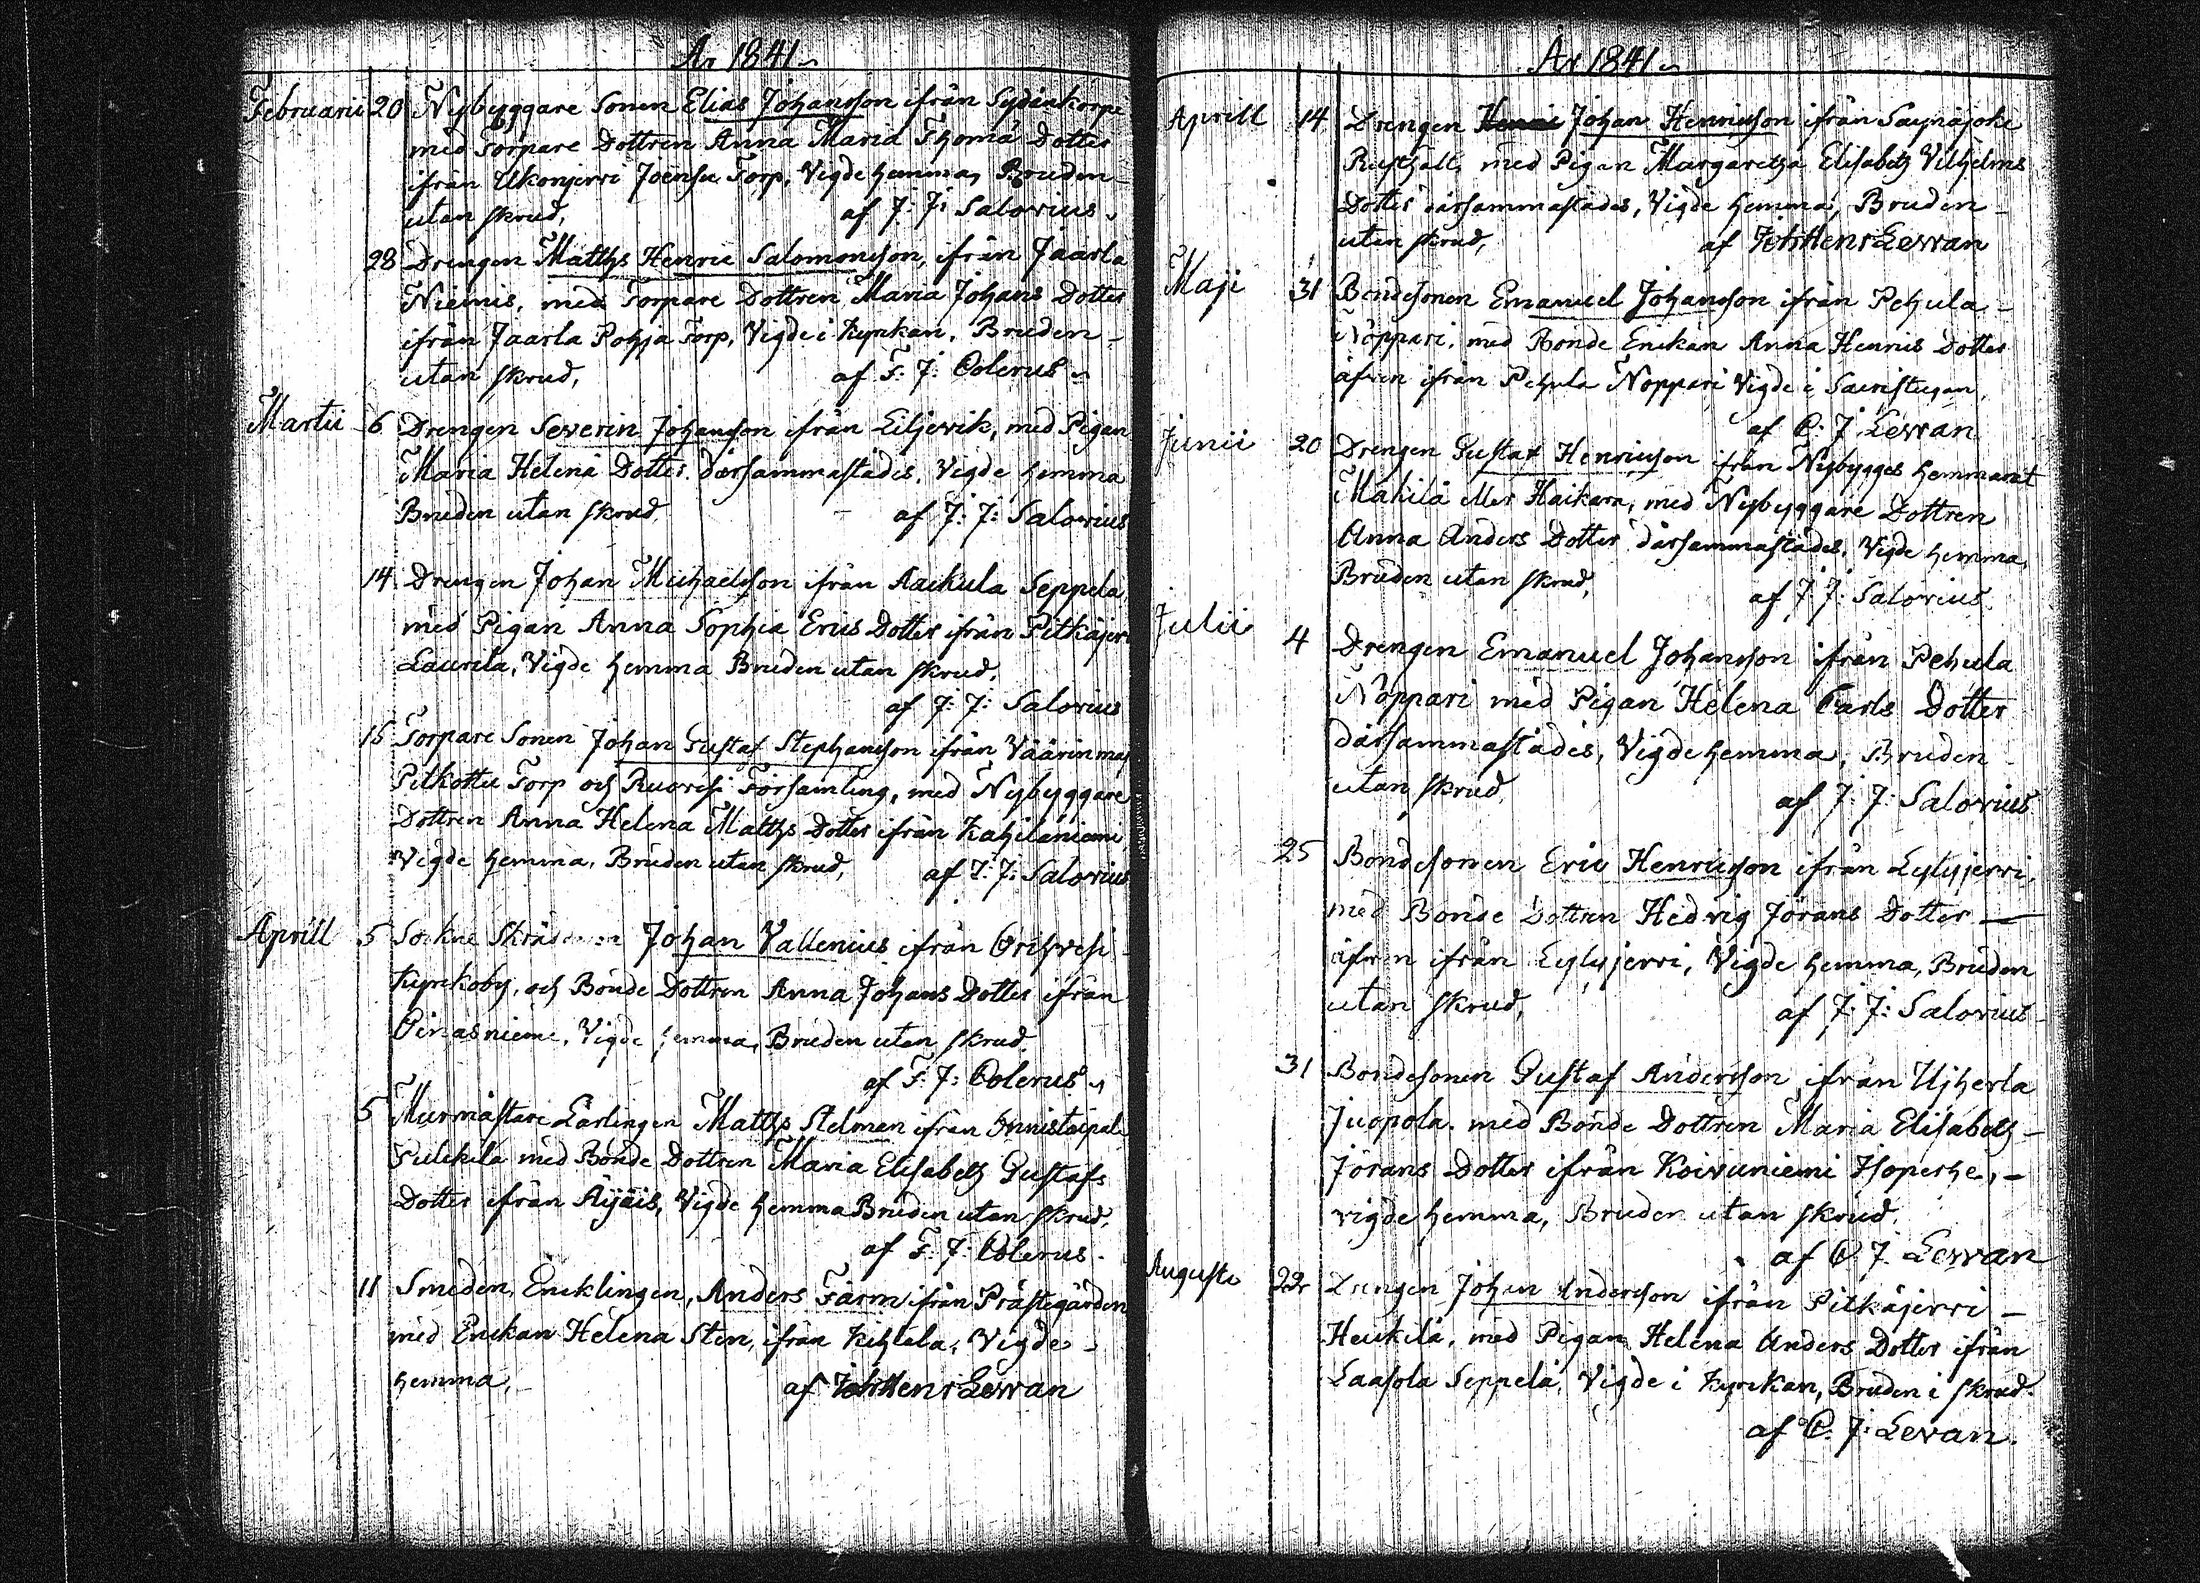 År 1841
Februarii 20 Nybyggare Sonen Elias Johansson ifrån Sydänkorpe
med Torpare Dottren Anna Maria Thomä Dotter
ifrån Ukonjervi Joensu Torp, Vigde hemma, Bruden
utan skrud, af J: J: Salovius
28 Drengen Matths Henric Salomonsson, ifrån Jaarla
Niemis, med Torpare Dottren Maria Johans Dotter
ifrån Jaarla Pohja Torp, Vigde i Kyrkan, Bruden
utan skrud, af F: J: Polerus
Martii 6 Drengen Severin Johansson ifrån Liljevik, med Pigan
Maria Helena Dotter därsammastädes, Vigde hemma
Bruden utan skrud, af J: J: Salovius
14 Drengen Johan Michaelsson ifrån Aaikula Seppela
med Pigan Anna Sophia Erics Dotter ifrån Pitkäjer
Laurila, Vigde hemma Bruden utan skrud,
af J: J: Salovius
15 Torpare Sonen Johan Gustaf Stephansson ifrån Väärinmaj
Pitkottu Torp och Ruovesi Församling, med Nybyggare
Dottren Anna Helena Matths Dotter ifrån Kahilaniemi
Vigde hemma, Bruden utan skrud, af J: J: Salovius
Aprill 5 Sockne Johan Vallenius ifrån Orihvesi
Kyrkoby, och Bonde Dottren Anna Johans Dotter ifrån
Oinasniemi, Vigde hemma, Bruden utan skrud.
af F: J: Polerus
5 Murmästare Lärlingen Matths Stelman ifrån Onnistaipale
Pulckila med Bonde Dottren Maria Elisabeth Gustafs
Dotter ifrån Äijäis, Vigde hemma Bruden utan skrud,
af F: J: Polerus
11 Smeden, Encklingen, Anders Färm ifrån Prästegården
med Enckan Helena Sten, ifrån Kihlala, Vigde
hemma, af Joh Henr Levvan
År 1841
Aprill 14 Drengen Johan Henricsson ifrån Saynäjoki
Rusthåll, med Pigan Margaretha Elisabeth Vilhelms
Dotter därsammastädes, Vigde hemma, Bruden
utan skrud, af Joh Henr Levvan
Maji 31 Bondesonen Emanuel Johansson ifrån Pehula
Noppari, med Bonde Enckan Anna Henrics Dotter
äfven ifrån Pehula Noppari Vigde i Sacristugan
af C. J Levvan
Junii 20 Drengen Gustaf Henricsson ifrån Nybygges hemmanet
Mahila eller Haikara, med Nybyggare Dottren
Anna Anders Dotter därsammastädes, Vigde hemma,
Bruden utan skrud, af J: J: Salovius
Julii 4 Drengen Emanuel Johansson ifrån Pehula
Noppari med Pigan Helena Carls Dotter
därsammastädes, Vigde hemma, Bruden
utan skrud, af J: J: Salovius
25 Bondesonen Eric Henricsson ifrån Lylyjerri,
med Bonde Dottren Hedvig Jörans Dotter
äfven ifrån Lylyjerri, Vigde hemma, Bruden
utan skrud, af J: J: Salovius
31 Bondesonen Gustaf Andersson ifrån Ujherla
Juopola med Bonde Dottren Maria Elisabeth
Jörans Dotter ifrån Koivuniemi Hoperhe,
vigde hemma, Bruden utan skrud.
af C. J. Levvan
Augusti 22 Drengen Johan Andersson ifrån Pitkäjerri
Heikilä, med Pigan Helena Anders Dotter ifrån
Laasola Seppelä, Vigde i Kyrckan, Bruden i skrud.
af C. J: Levan.